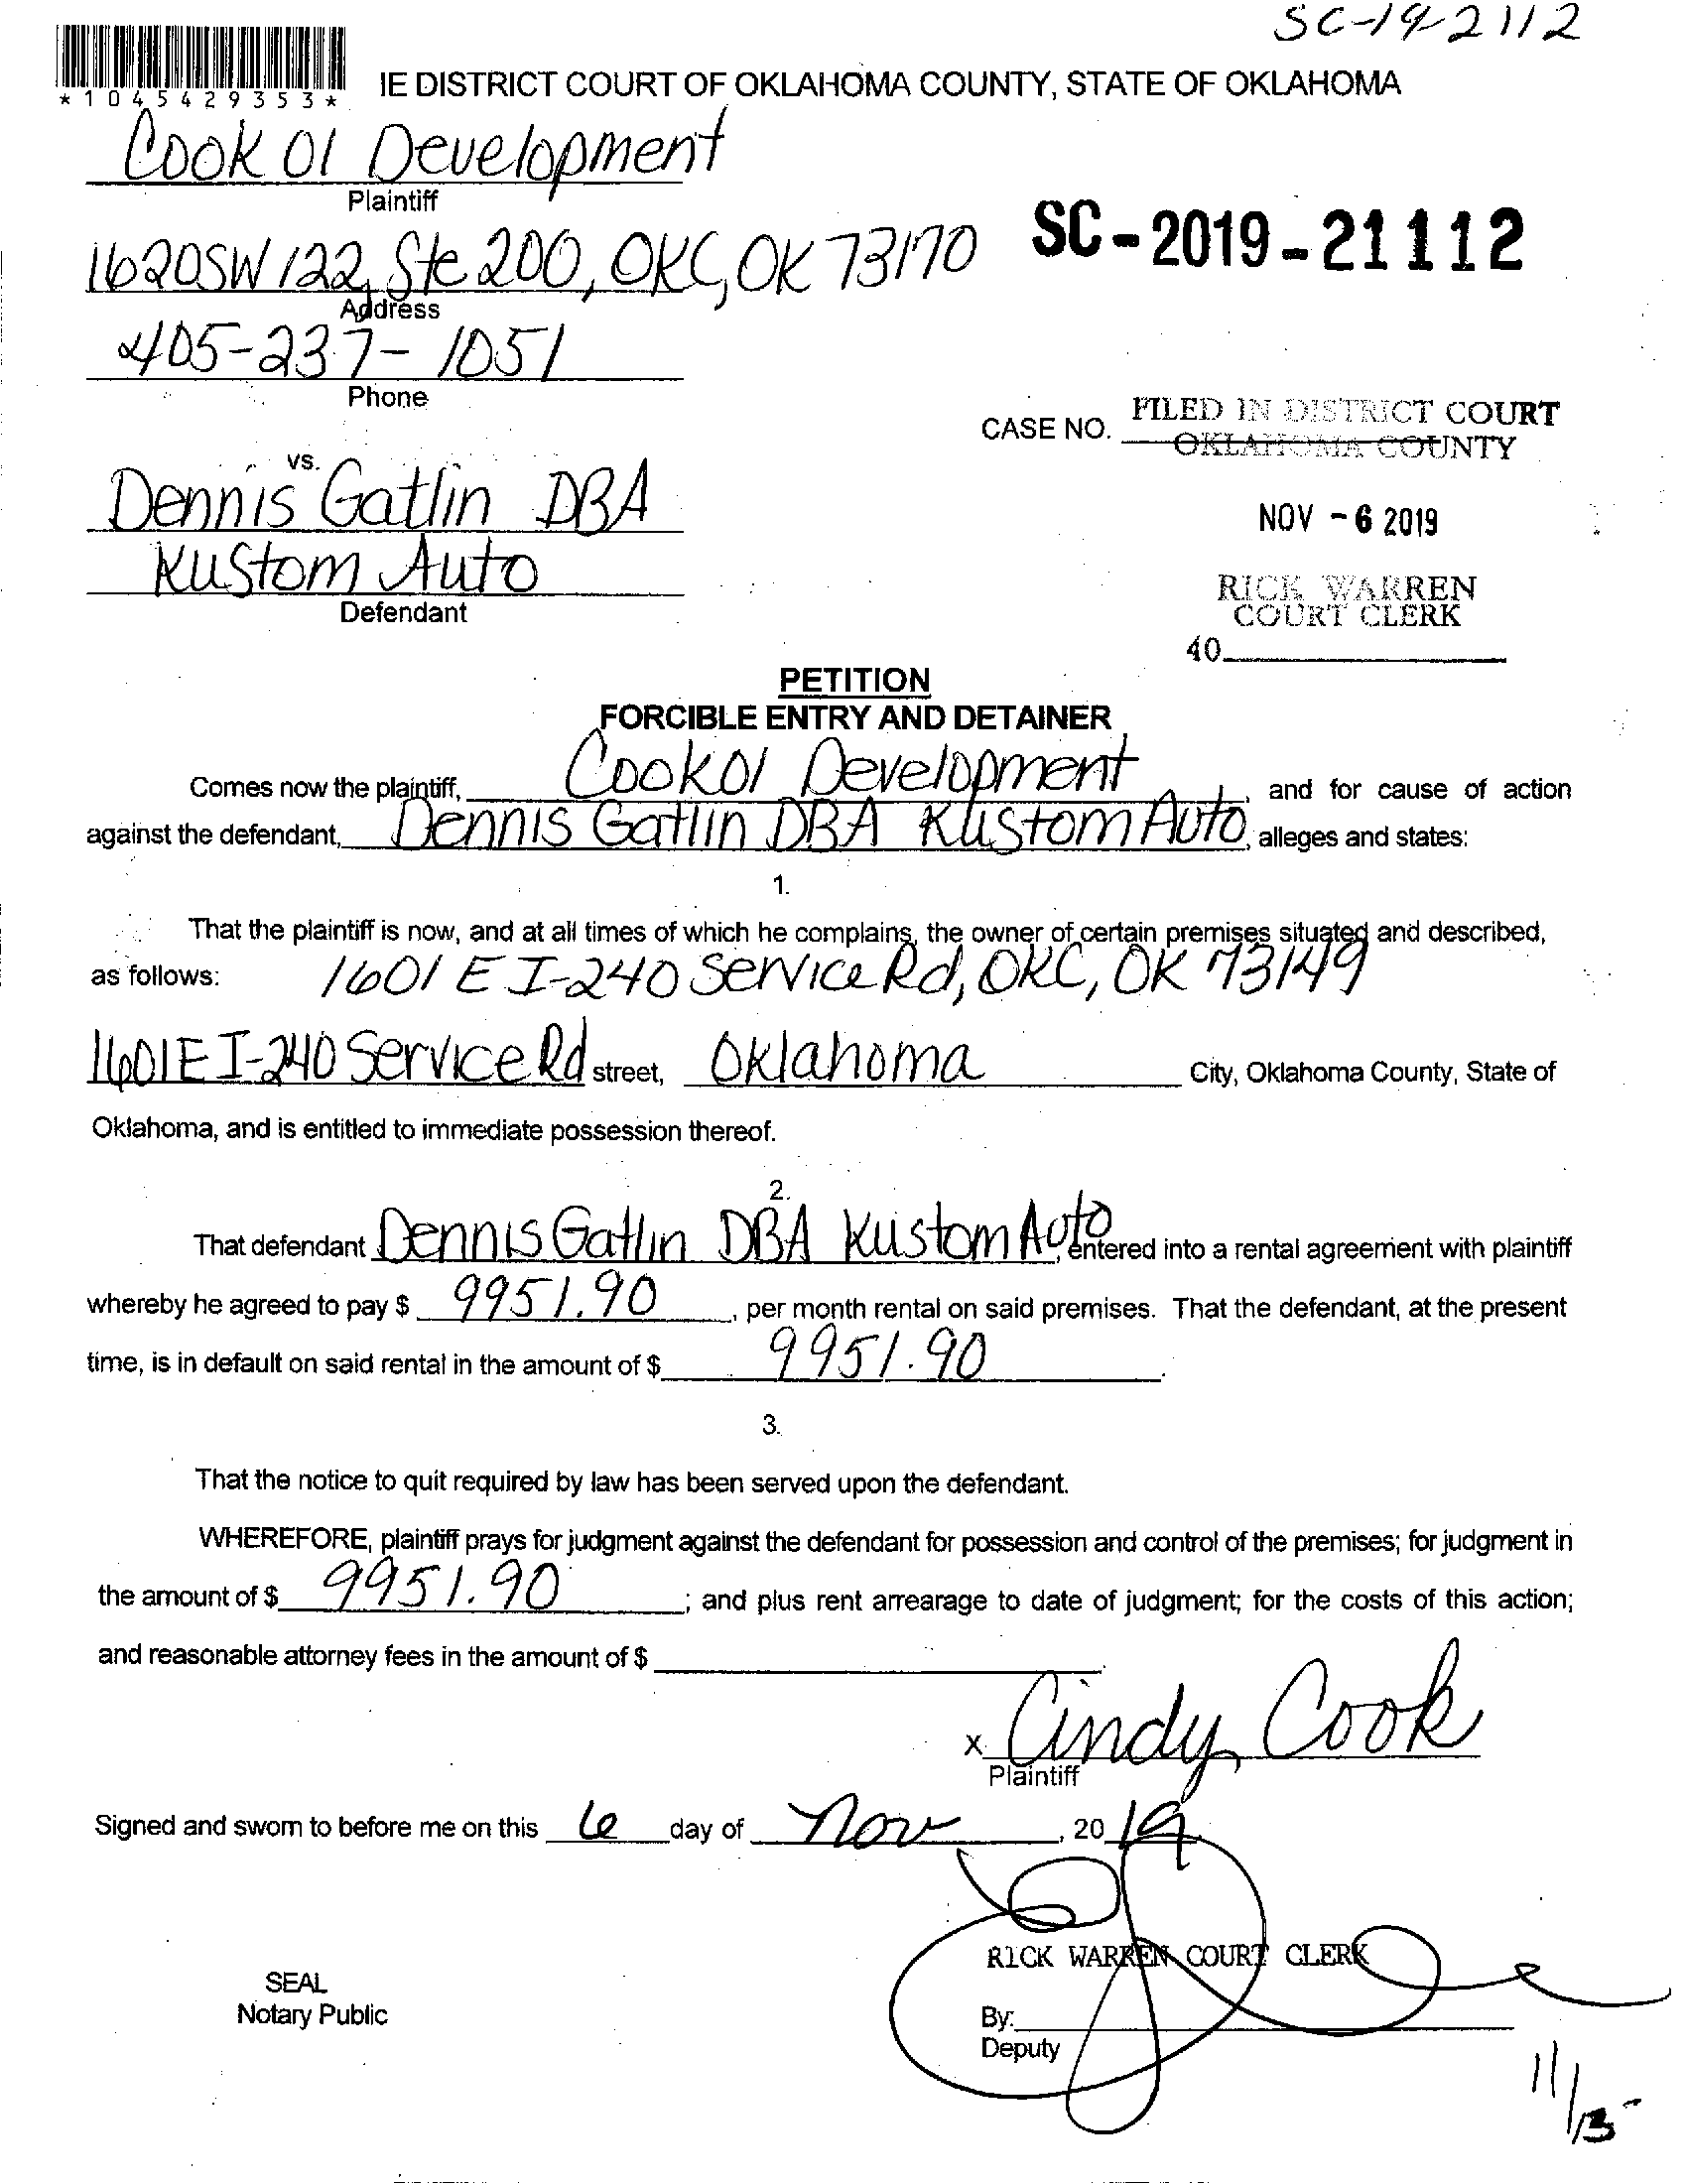 SC-19-2112
*1045429353*
IE DISTRICT COURT OF OKLAHOMA COUNTY, STATE OF OKLAHOMA
Cook 01 Development
Plaintiff
1620 SW 122, Ste 200, OKC, OK 73170
SC-2019-21112
Address
405-237-1051
Phone
CASE NO.
FILED IN DISTRICT COURT
OKLAHOMA COUNTY
vs.
Dennis Gatlin DBA
NOV -6 2019
Kustom Auto
Defendant
RICK WARREN
COURT CLERK
40
PETITION
FORCIBLE ENTRY AND DETAINER
Comes now the plaintiff, Cook 01 Development, and for cause of action
against the defendant, Dennis Gatlin DBA Kustom Auto, alleges and states:
1.
That the plaintiff is now, and at all times of which he complains, the owner of certain premises situated and described,
as follows: 1601 E I-240 Service Rd, OKC, OK 73149
1601 E I-240 Service Rd street, Oklahoma City, Oklahoma County, State of
Oklahoma, and is entitled to immediate possession thereof.
2.
That defendant Dennis Gatlin DBA Kustom Auto, entered into a rental agreement with plaintiff
whereby he agreed to pay $ 9951.90, per month rental on said premises. That the defendant, at the present
time, is in default on said rental in the amount of $ 9951.90.
3.
That the notice to quit required by law has been served upon the defendant.
WHEREFORE, plaintiff prays for judgment against the defendant for possession and control of the premises; for judgment in
the amount of $ 9951.90; and plus rent arrearage to date of judgment; for the costs of this action;
and reasonable attorney fees in the amount of $
x Cindy Cook
Plaintiff
Signed and sworn to before me on this 6 day of Nov, 2019
RICK WARREN COURT CLERK
SEAL
Notary Public
By:
Deputy
11/15